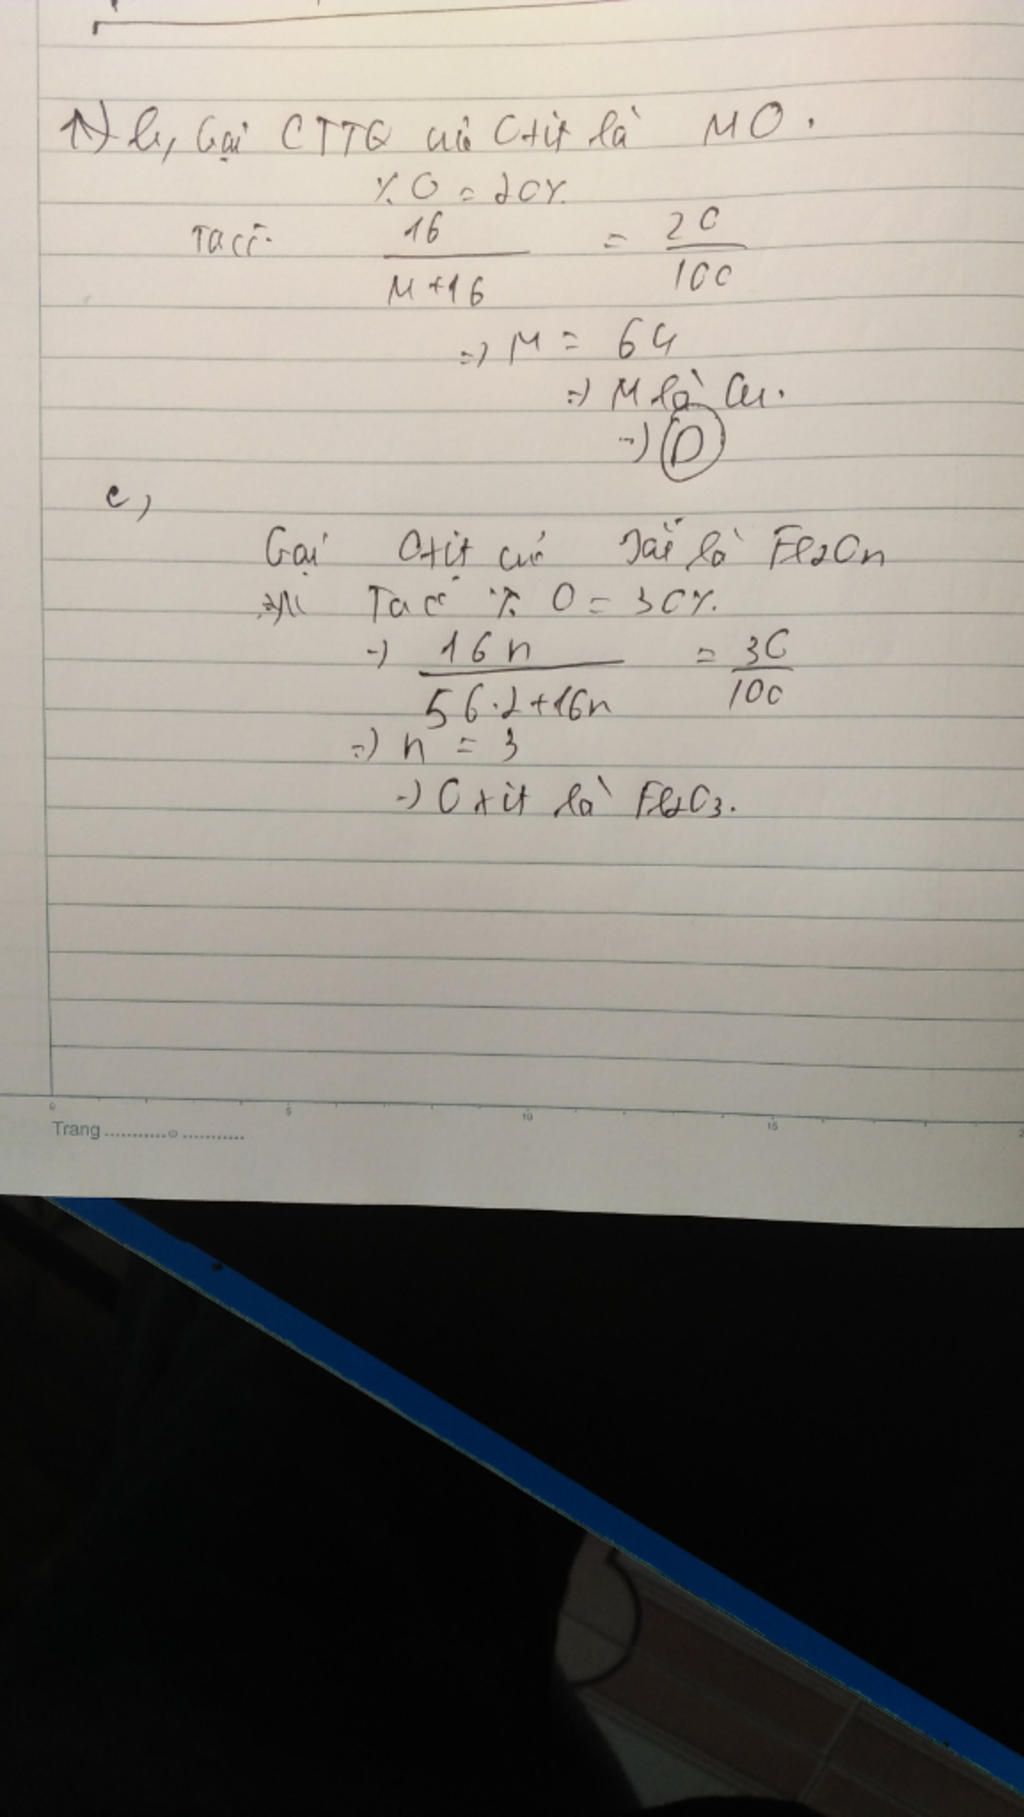 1) b, Gọi CTTQ của Oxit là MO.
% O = 20%
Ta có: 16 / M+16 = 20 / 100
=> M = 64
=> M là Cu.
=> D
c,
Gọi Oxit của Sắt là Fe2On
Ta có % O = 30%.
=> 16n / 56.2+16n = 30 / 100
=> n = 3
=> Oxit là Fe2O3.
0 5 10 15 2
Trang